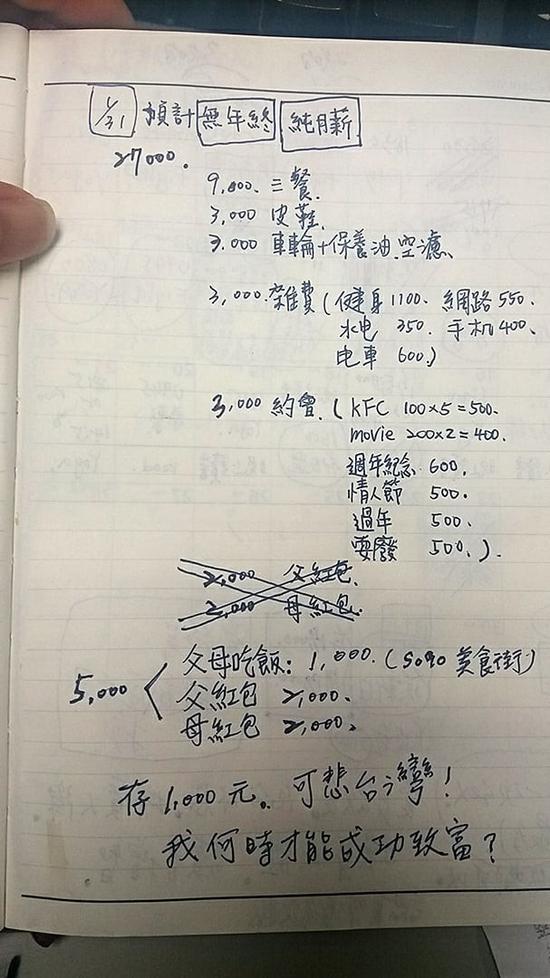 1/31 預計 無年終 純月薪
27000.
9,000. 三餐.
3,000 皮鞋.
3.000 車輪+保養油.空濾、
3,000.雜費(健身1100、網路550.
水电 350. 手机400、
电車 600.)
3,000 約會.(KFC 100×5=500.
movie 200×2=400.
週年紀念 600.
情人節 500.
過年 500.
耍廢 500.).
2,000 父紅包.
2,000 母紅包.
父母吃飯:1,000.(Sogo 美食街)
5,000 < 父紅包 2,000、
母紅包 2,000、
存1,000元。可悲台灣!
我何時才能成功致富?